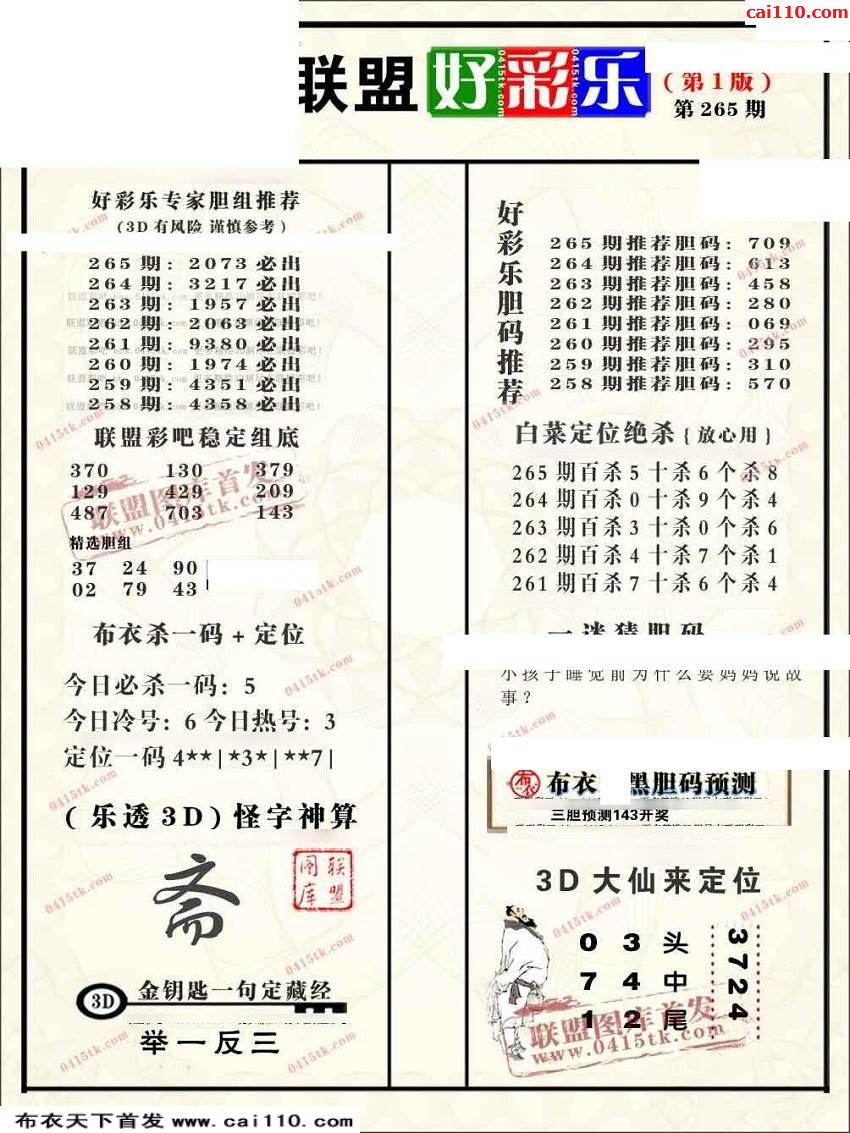 cai110.com
联盟 好彩乐
(第1版)
第265期
好彩乐专家胆组推荐
(3D有风险 谨慎参考)
265期: 2073必出
264期: 3217必出
263期: 1957必出
262期: 2063必出
261期: 9380必出
260期: 1974必出
259期: 4351必出
258期: 4358必出
联盟彩吧稳定组底
370 130 379
129 429 209
487 703 143
精选胆组
37 24 90
02 79 43
布衣杀一码+定位
今日必杀一码: 5
今日冷号: 6 今日热号: 3
定位一码 4**|*3*|**7|
(乐透3D) 怪字神算
斋
联盟图库
3D 金钥匙一句定藏经
举一反三
好彩乐胆码推荐
265期推荐胆码: 709
264期推荐胆码: 613
263期推荐胆码: 458
262期推荐胆码: 280
261期推荐胆码: 069
260期推荐胆码: 295
259期推荐胆码: 310
258期推荐胆码: 570
白菜定位绝杀{放心用}
265期百杀5十杀6个杀8
264期百杀0十杀9个杀4
263期百杀3十杀0个杀6
262期百杀4十杀7个杀1
261期百杀7十杀6个杀4
一谜猜胆码
小孩子睡觉前为什么要妈妈说故
事?
布衣 黑胆码预测
三胆预测143开奖
3D大仙来定位
0 3 头
7 4 中
1 2 尾
3724
联盟图库首发
www.0415tk.com
联盟图库首发
www.0415tk.com
布衣天下首发 www.cai110.com